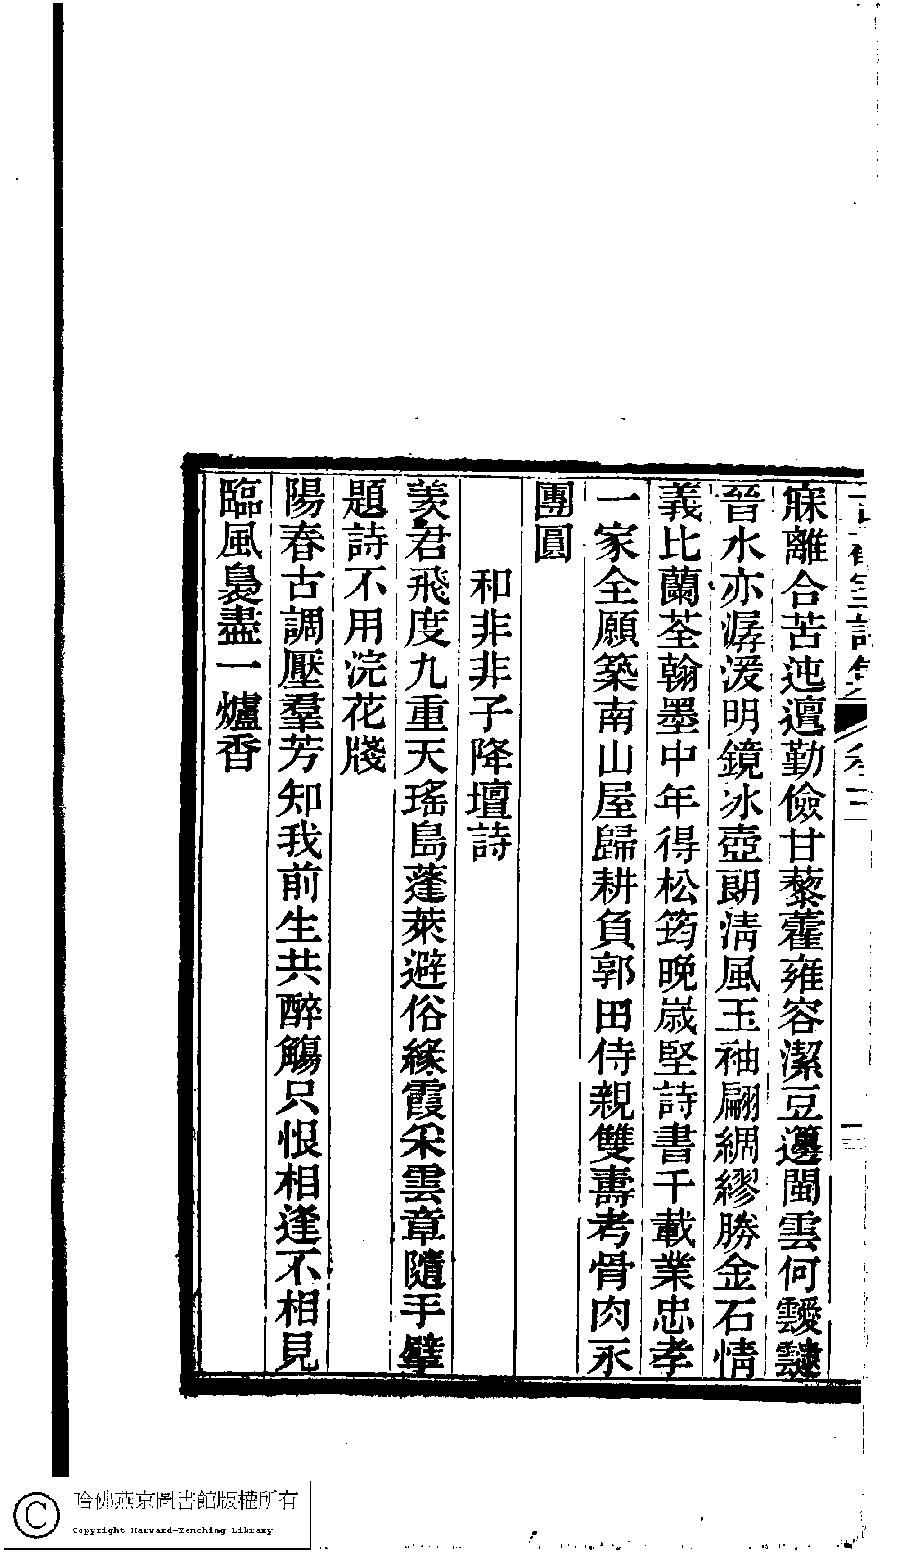 寐離合苦迍邅勤儉甘藜藿雍容潔豆籩閩雲何靉靆
晉水亦潺湲明鏡冰壺朗淸風玉袖翩綢繆勝金石情
義比蘭荃翰墨中年得松筠晚歳堅詩書千載業忠孝
一家全願築南山屋歸耕負郭田侍親雙壽考骨肉永
團圓
和非非子降壇詩
羨君飛度九重天瑤島蓬萊避俗緣霞采雲章隨手擘
題詩不用浣花牋
陽春古調壓羣芳知我前生共醉觴只恨相逢不相見
臨風裊盡一爐香
哈佛燕京圖書館版權所有
Copyright Harvard-Yenching Library